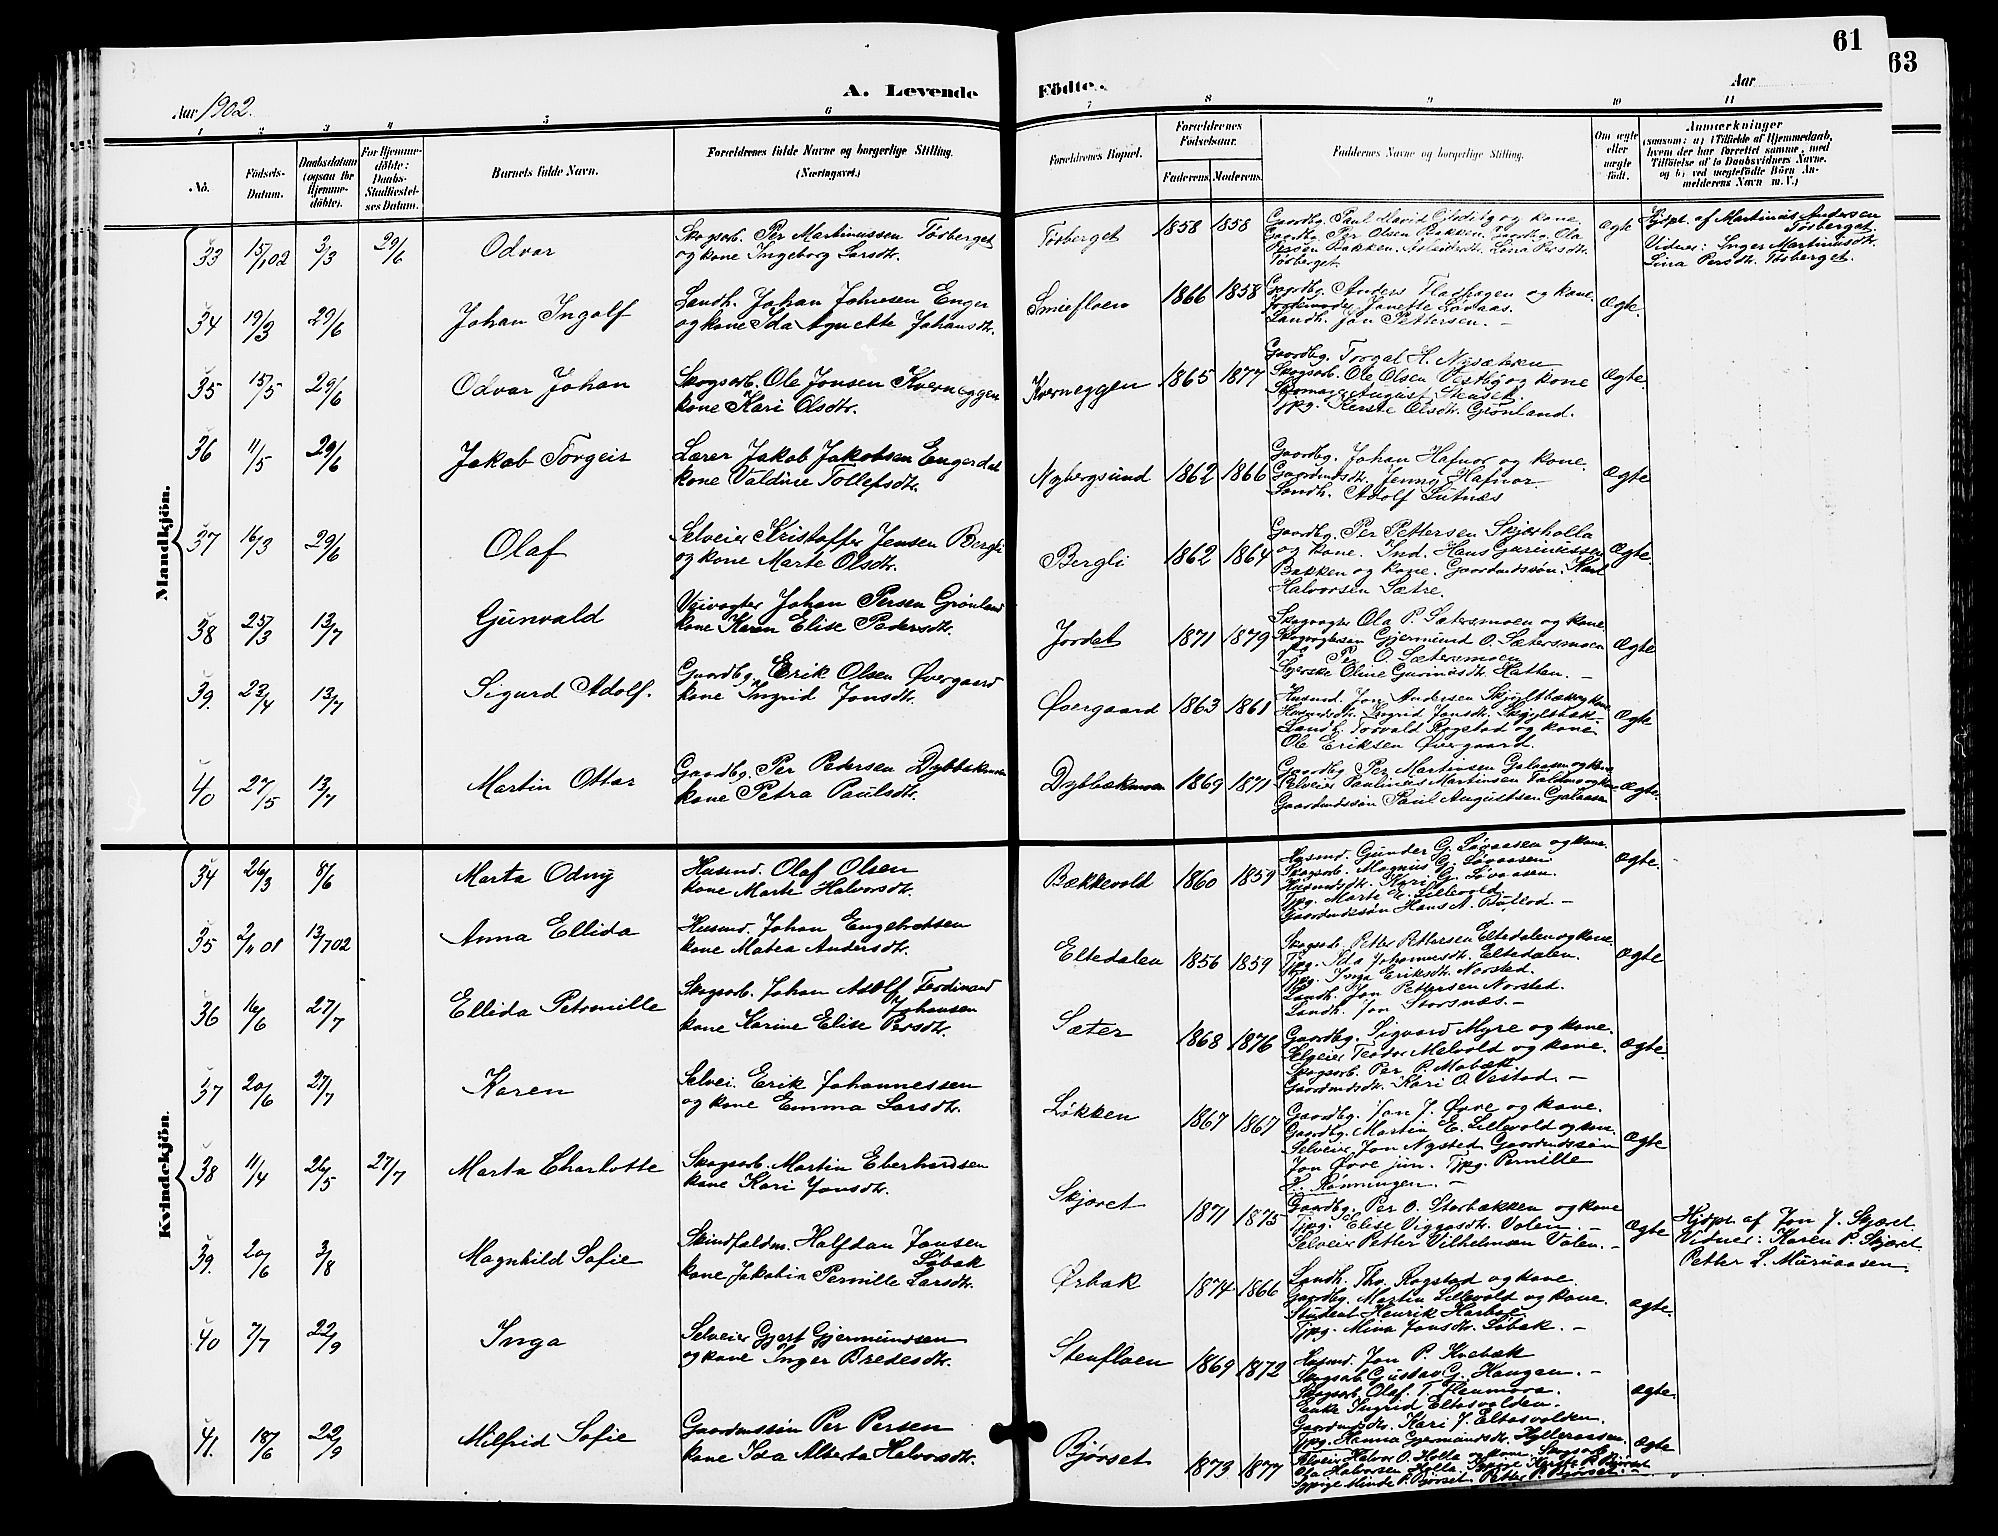 61
63
A. Levende
Födte.
Aar 1902.
Aar
1 2 3 4 5 6 7 8 9 10 11
No.
Födsels-Datum.
Daabsdatum (ogsaa for Hjemme-döbte).
For Hjemme-döbte: Daabs-Stadfæstel-ses Datum.
Barnets fulde Navn.
Forældrenes fulde Navne og borgerlige Stilling.
(Næringsvei.)
Forældrenes Bopæl.
Forældrenes Födselsaar.
Faderens. Moderens.
Faddernes Navne og borgerlige Stilling.
Om ægte eller uægte født.
Anmærkninger
(saasom: a) i Tilfælde af Hjemmedaab,
hvem der har forrettet samme, med
Tilföielse af to Daabsvidners Navne.
og b) ved uægtefödte Börn An-
melderens Navn m. V.)
Mandkjön.
33 15/1 02 3/3 29/6 Odvar
Skogsarb. Per Martinussen Tösberget
og kone Ingeborg Larsdtr.
Tösberget 1858 1858
Gaardbg. Paul
Per Olsen Bakken
Bakken. Lina Persdtr.
Tösberget
Ægte
Hjdpt. af Martinus Andersen
Tösberget.
Vidner: Inger Martinusdtr.
Lina Persdtr. Tösberget.
34 19/3 29/6 Johan Ingolf
Landh. Johan Johnsen Enger
og kone Ida Agnethe Johansdtr.
Smiefloen 1866 1858
Gaardbg. Anders Fladhagen og kone
Jordmoder Lövaas.
Landh. Jon Pettersen. –
Ægte.
35 15/5 29/6 Odvar Johan
Skogsarb. Ole Jonsen Kverneggen
kone Kari Olsdtr.
Kverneggen 1865 1877
Gaardbg. Torgal H. Nysæteren
Skogsarb. Ole Olsen Vestby og kone
Skomager August
Tjpg. Kerste Olsdtr. Grönland.
Ægte
36 11/5 29/6 Jakob Torgeir
Lærer Jakob Jakobsen Engerdal
kone Valdine Tollefsdtr.
Nybergsund 1862 1866
Gaardbg. Johan Hafnor og kone.
Gaardmdsdtr. Jenny Hafnor.
Landh. Adolf Lutnæs
Ægte
37 16/3 29/6 Olaf
Selveier Kristoffer Jensen Bergli
og kone Marte Olsdtr.
Bergli 1862 1864
Gaardbg. Per Pettersen Skjærholla
og kone. Ind. Hans Gureniussen
Bakken og kone. Gaardmdssön. Karl
Halvorsen Sætre.
Ægte.
38 25/3 13/7 Gunvald
Veivogter Johan Persen Grönland
kone Karen Elise Pedersdtr.
Jordet 1871 1879
Skogvogter Ola P. Sætersmoen og kone
Skogvogtersön Gjermund O. Sætersmoen
Per O. Sætersmoen
Syerske Oline Gurinusdtr. Hatten. –
Ægte
39. 23/4 13/7 Sigurd Adolf.
Gaardbg. Erik Olsen Övergaard
kone Ingrid Jonsdtr.
Övergaard 1863 1861
Husmd. Jon Andersen Skjyltbæk og kone
Husmdsdtr. Ingrid Jonsdtr. Skjyltbæk –
Landh. Torvald Rogstad og kone
Ole Eriksen Övergaard.
Ægte
40 27/5 13/7 Martin Ottar
Gaardbg. Per Pedersen Dybbækmoen
kone Petra Paulsdtr.
Dybbækmoen 1869 1871
Gaardbg. Per Martinsen Galaasen og kone
Selveier Paulinus Martinsen Faldmo og kone
Gaardmdssön Paul Augustsen Galaasen
Ægte.
Kvindekjön.
34 26/3 8/6 Marta Odny
Husmd. Olaf Olsen
kone Marte Halvorsdtr.
Bækkevold 1860 1859
Husmd. Gunder G. Lövaasen og kone.
Skogsarb. Magnus G. Lövaasen
Husmdsdtr. Kari G. Lövaasen.
Tjpg. Marte E. Lillevold.
Gaardmdssön Hans A. –
Ægte.
35 2/11 01 13/7 02 Anna Ellida
Husmd. Johan Engebretsen
kone Matea Andersdtr.
Eltedalen 1856 1859
Skogsarb. Petter Pettersen Eltedalen og kone.
Tjpg. Ida Johannesdtr. Eltedalen.
Tjpg. Inga Eriksdtr. Norsted.
Landh. Jon Pettersen Norsted.
Landh. Jon Storsnæs. –
Ægte
36 16/6 27/7 Ellida Petronille
Skogsarb. Johan Adolf Ferdinand
Johansen
kone Karine Elise Persdtr.
Sæter 1868 1876
Gaardbg. Sigvard Myre og kone.
Selveier Teodor Melvold og kone.
Skogsarb. Per P. Mobæk
Gaardmdsdtr. Kari O. Vestad. –
Ægte.
37 20/6 27/7 Karen
Selvei. Erik Johannessen
og kone Emma Larsdtr.
Løkken 1867 1867
Gaardbg. Jon J. Øvre og kone.
Gaardbg. Martin E. Lillevold og kone.
Selveier Jon Nysted Gaardmdssön
Jon Øvre jun. Tjpg. Pernille
L. Rønningen. –
Ægte
38 11/4 26/5 27/7 Marta Charlotte
Skogsarb. Martin Eberhardsen
kone Kari Jonsdtr.
Skjæret 1871 1875
Gaardbg. Per O. Storbækken og kone
Tjpg. Elise Viggosdtr. Valen. –
Selveier Petter Vilhelmsen Valen. –
Ægte
Hjdpt. af Jon J. Skjæret.
Vidner: Karen P. Skjæret
Petter L. Muruaasen.
39. 20/6 3/8 Magnhild Sofie
Skindfeldm. Halfdan Jansen
Løbak
kone Jakobia Pernille Larsdtr.
Ørbak 1874 1866
Landh. Tho. Rogstad og kone.
Gaardbg. Martin Lillevold og kone.
Student Henrik Harboe
Tjpg. Mina Jonsdtr. Løbak. –
Ægte.
40 7/7 22/9 Inga
Selveier Gjert Gjermundsen
og kone Inger Bredesdtr.
Stenfloen 1869 1872
Husmd. Jon P. Kvebæk
Skogsarb. Gustav G. Haugen. –
Skogsarb. Olaf T. Flenmoen.
Enke Ingrid Eltasvolden.
Gaardmdsdtr. Kari J. Eltasvolden.
Ægte.
41. 18/6 22/9 Milfrid Sofie
Gaardmdssön Per Persen
kone Ida Alberta Halvorsdtr.
Bjørset 1873 1877
Tjpg. Hanna Gjermundsdtr. Hylleraasen.
Selveier Halvor O. Holla og kone. Skogsarb.
Ola Halvorsen Holla. P. Bjørset
Tjpige Minda P. Bjørset. Petter P. Bjørset. –
Ægte